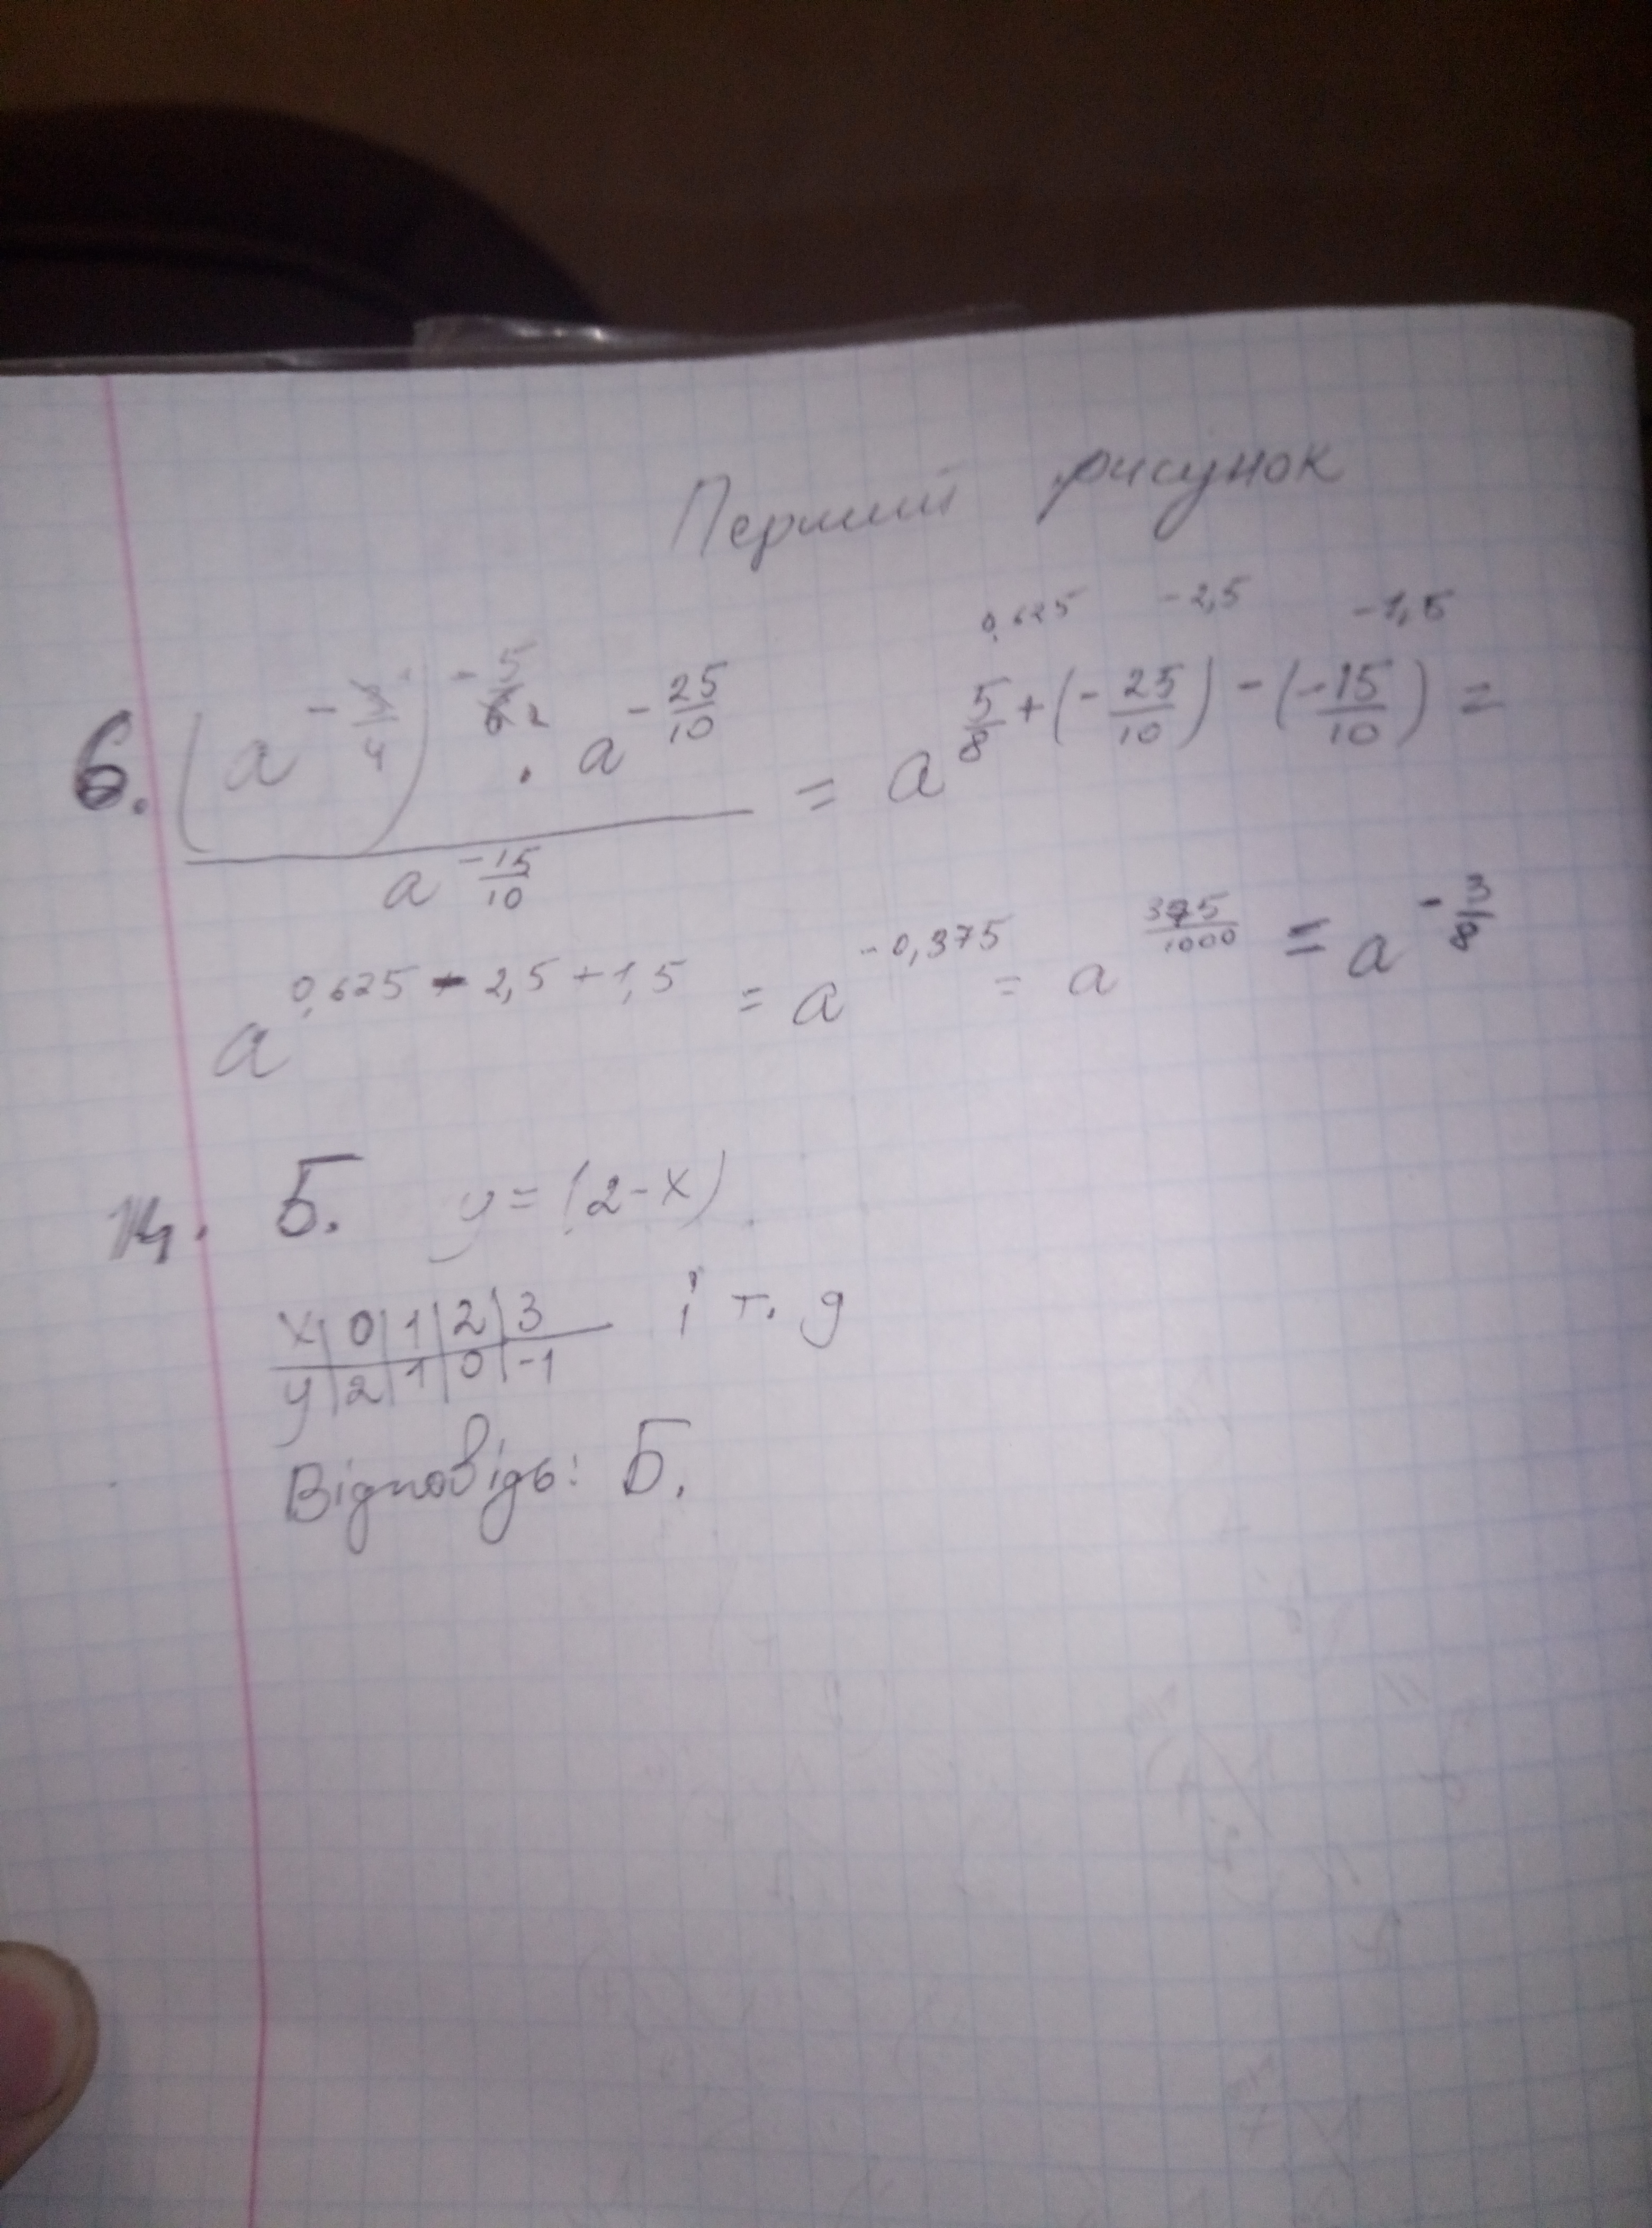 Перший рисунок
6. (a^{-3/4})^{-5/6 2} · a^{-25/10} / a^{-15/10} = a^{5/8+(-25/10)-(-15/10)} =
0,625 -2,5 -1,5
a^{0,625 - 2,5 + 1,5} = a^{-0,375} = a^{375/1000} = a^{-3/8}
14. Б. y = (2-x)
x | 0 | 1 | 2 | 3 і т. д
y | 2 | 1 | 0 | -1
Відповідь: Б.